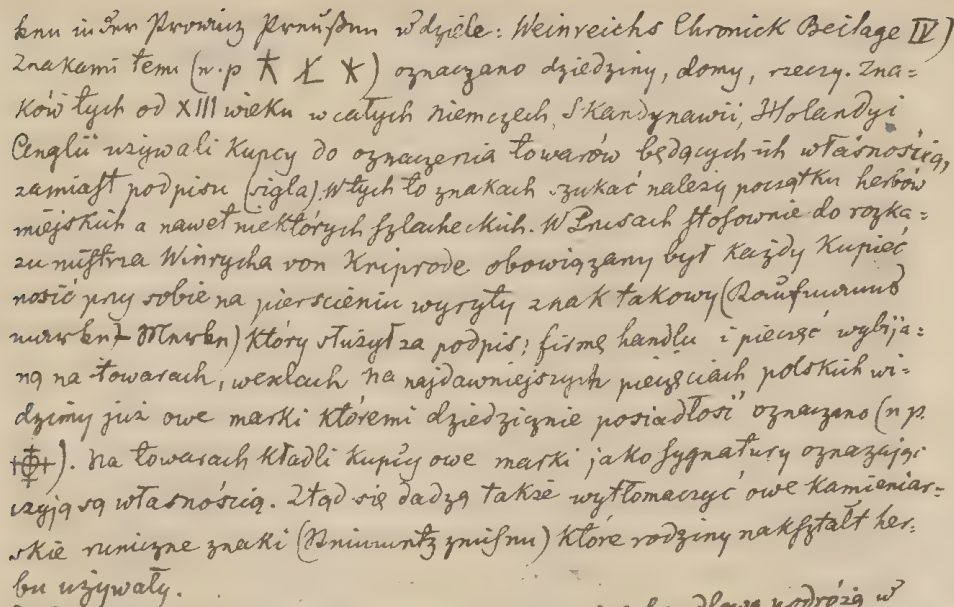 ken in der Prowinz Preußen w dziele: Weinreichs Chronick Beilage IV)
Znakami temi (n.p ) oznaczano dziedziny, domy, rzeczy. Zna=
ków tych od XIII wieku w całych Niemczech, Skandynawii, Holandyi
Anglii używali Kupcy do oznaczenia towarów będących ich własnością,
zamiast podpisu (sigla). W tych to znakach szukać należy początku herbów
miejskich a nawet niektórych szlacheckich. W Prusach stosownie do rozka=
zu mistrza Winrycha von Kniprode obowiązany był każdy Kupiec
nosić przy sobie na pierscieniu wyryty znak takowy (Kaufmanns
marken Marken) który służył za podpis, firmę handlu i pieczęć wybija=
ną na towarach, wexlach na najdawniejszych pieczęciach polskich wi=
dzimy już owe marki któremi dziedzicznie posiadłosi oznaczano (n p.
). Na towarach kładli kupcy owe marki jako sygnatury oznazając
czyją są własnością. Ztąd się dadzą także wytłomaczyć owe kamieniar=
skie runiczne znaki (Steinmetzzeichen) które rodziny nakształt her=
bu używały.
podróżą w